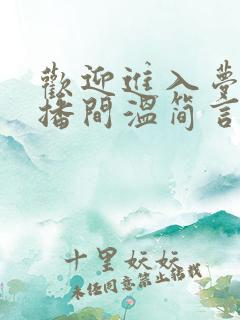 歡迎進入夢
播間溫简言
十里妏妏
未经同意禁止转载